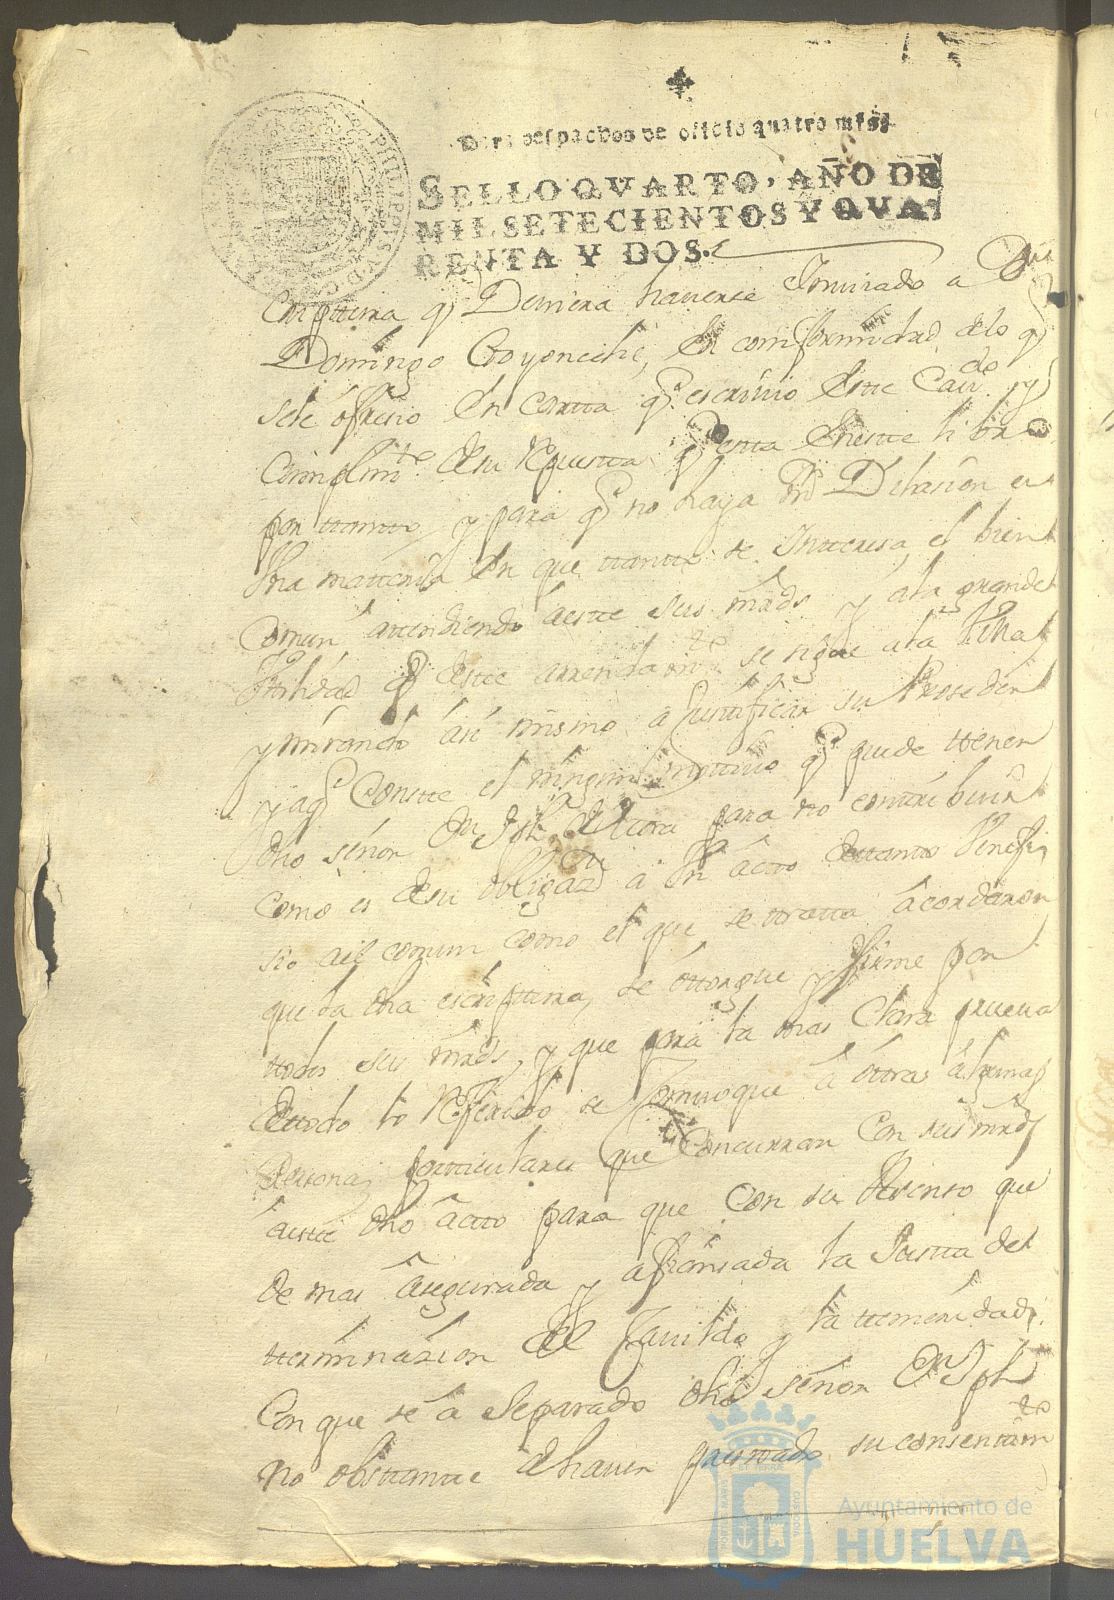 Para despachos de oficio quatro mrs.
SELLO QVARTO, AÑO DE
MIL SETECIENTOS Y QVA-
RENTA Y DOS.
escriptura q Deviera haverse Imviado a Dn
Domingo Goyoneche, En comformidad delo q
sele ofresio En cartta q escrivio Estte Cavdo y
Cumplimto desu Repuestta q estta Enestte libro
por ttantto, y para q no haya mas Dilasion en
Una matteria En que ttantto se Intteresa el bien
Comun, attendiendo a estte sus mrds y ala grande
Utilidad q deste arrendamto se sigue a la Villa
y mirando asi mismo a justtificar su Proseder
y a q Constte el ningun mottivo q puede ttener
dho señor Dn Jph de para no conttribuir
como es desu obligazn a Un actto de ttantto Venefi
sio al comun como el que se tratta acordaron
que la dha escripttura, se ottorgue y firme por
ttodos sus mrds, y que para la mas Clara prueva
de ttodo lo Referido se Comvoque a ottras algunas
Personas partticulares que Concurran Con sus mrds
a estte dho actto para que Con su que
de mas asegurada y afiansada la Justta det
terminasion del Cavildo y la ttemeridad
Con que se a Separado dho señor Dn Jph
no obsttantte de haver presttado su consenttimto
Ayuntamiento de
HUELVA